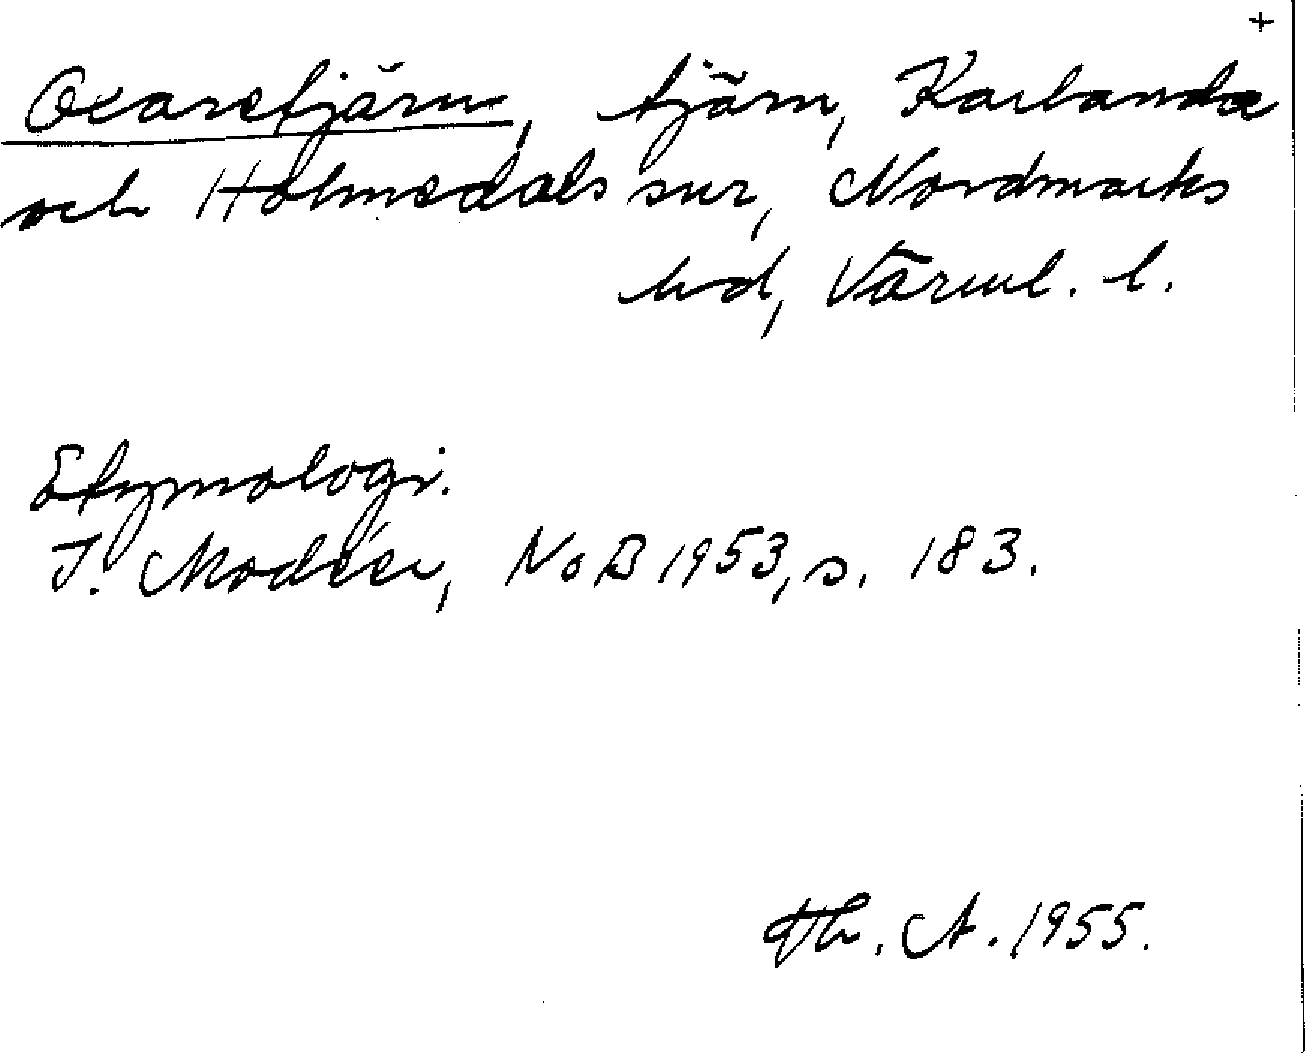 +
Oxaretjärn, tjärn, Karlanda
och Holmedals snr, Nordmarks
hd, Värml. l.
Etymologi.
I. Modéer, NoB 1953, s. 183.
Th. A. 1955.